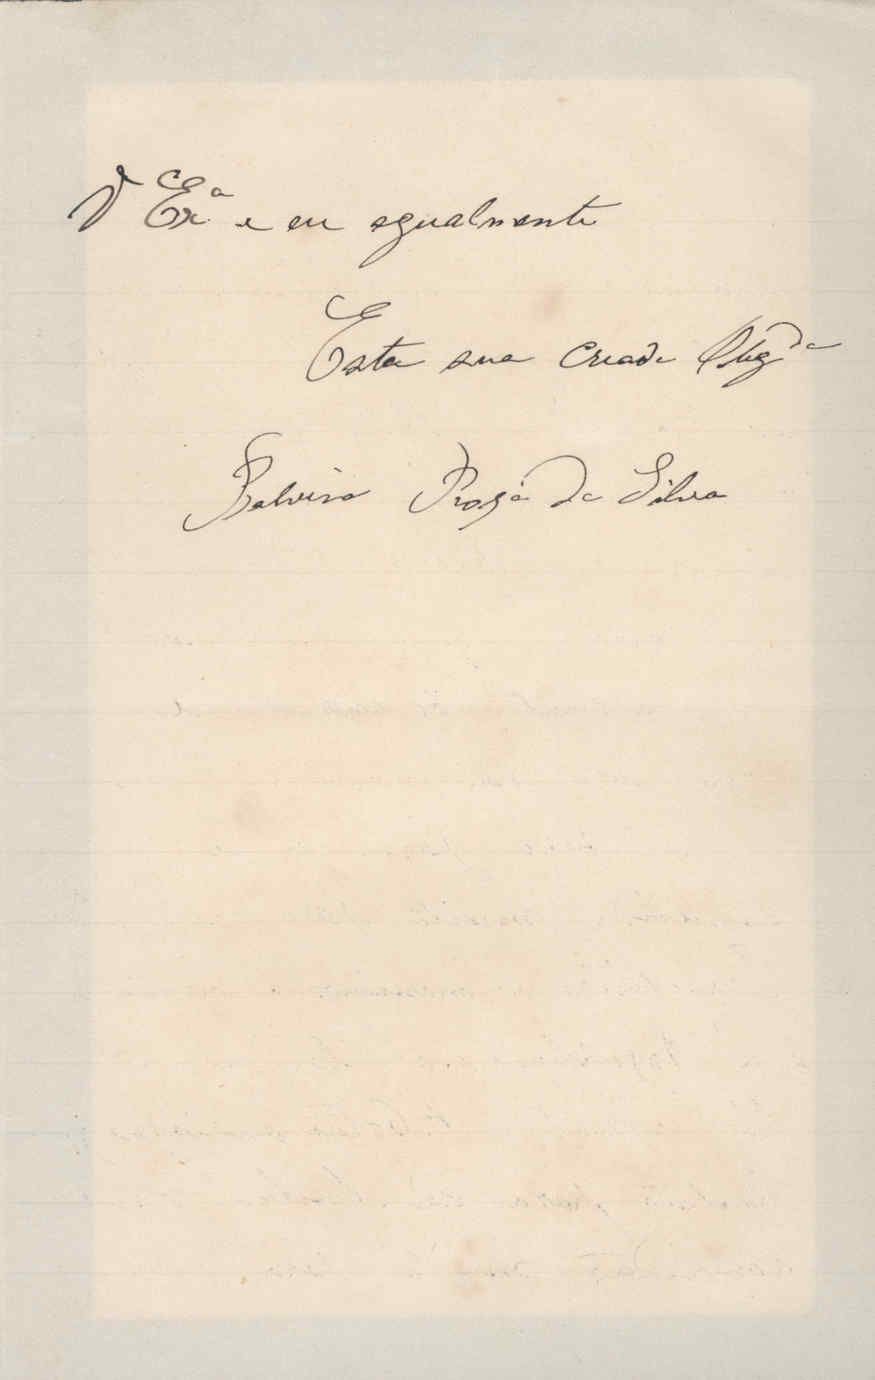 V Exª e eu egualmente
Esta sua criada Obgda
Balvina Roza da Silva